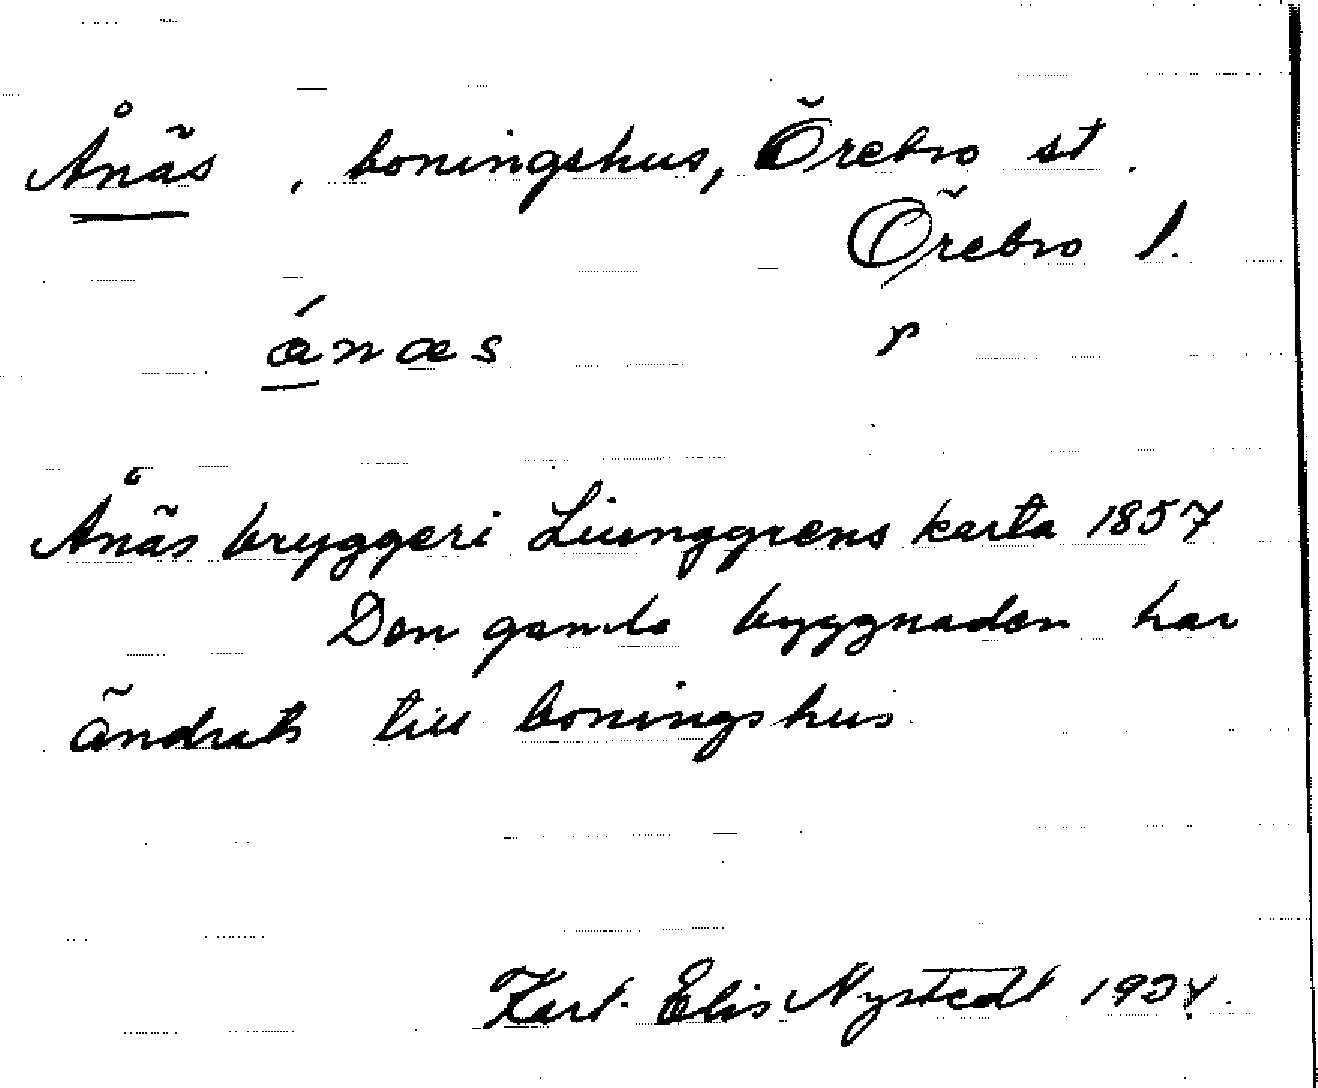 Ånäs, boningshus, Örebro st.
Örebro l.
ánæs
Ånäs bryggeri Liunggrens karta 1857
Den gamla byggnaden har
ändrats till boningshus
Karl-Elis Nystedt